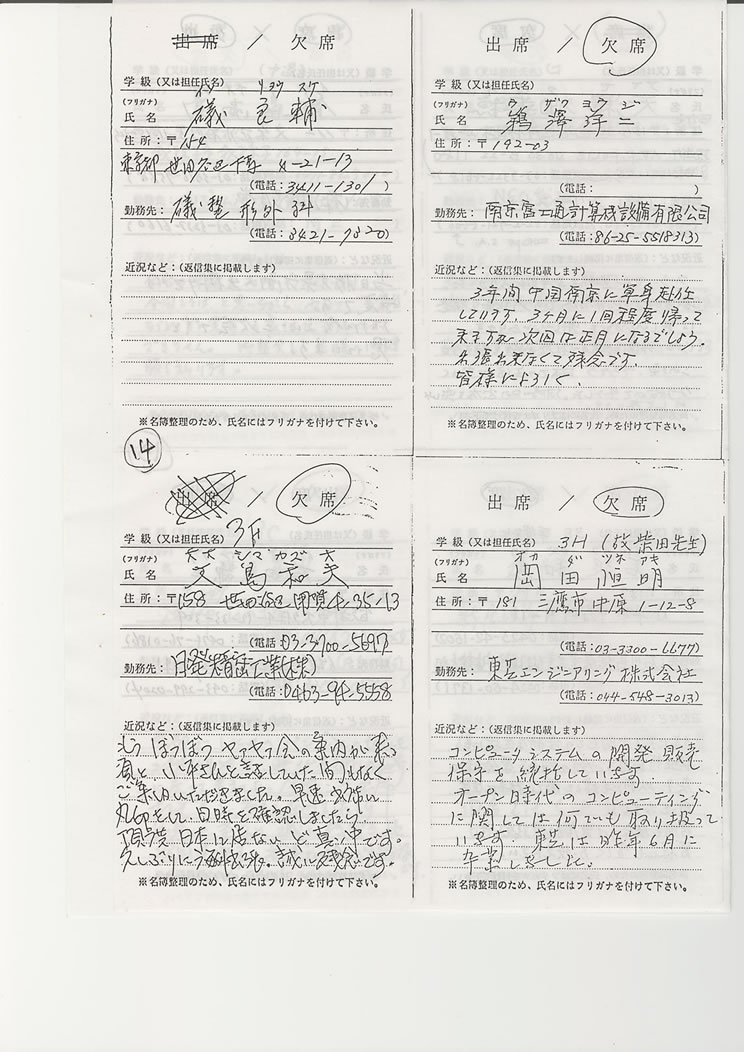 出席 / 欠席
学級（又は担任氏名）
(フリガナ) リョウ スケ
氏名 磯 良輔
住所：〒154
東京都 世田谷区 4-21-13
(電話：3411-1301)
勤務先：磯整形外科
(電話：3421-7320)
近況など：（返信集に掲載します）
※名簿整理のため、氏名にはフリガナを付けて下さい。
出席 / 欠席
学級（又は担任氏名）
(フリガナ) ウ ザワ ヨウ ジ
氏名 鵜澤洋二
住所：〒192-03
(電話： )
勤務先：南京富士通計算機設備有限公司
(電話：86-25-5518313)
近況など：（返信集に掲載します）
3年間中国南京に単身赴任
しています。3ヶ月に1回程度帰って
来ますが次回は正月になるでしょう。
出来なくて残念です。
皆様によろしく。
※名簿整理のため、氏名にはフリガナを付けて下さい。
14
出席 / 欠席
学級（又は担任氏名） 3F
(フリガナ) シマ カズ オ
氏名 島和夫
住所：〒158 世田谷区用賀4-35-13
(電話：03-3700-5697)
勤務先：
(電話：0463-94-5558)
近況など：（返信集に掲載します）
もうぼつぼつヤアヤア会の案内が来る
頃と、小平さんと話していた間もなく
ご案内いただきました。早速出席に
丸印をし、日時を確認しましたら
日本に居ないど真中です。
久しぶりに 誠に残念です。
※名簿整理のため、氏名にはフリガナを付けて下さい。
出席 / 欠席
学級（又は担任氏名） 3H（故柴田先生）
(フリガナ) オカ ダ ツネ アキ
氏名 岡田恒明
住所：〒181 三鷹市中原1-12-8
(電話：03-3300-6677)
勤務先：東芝エンジニアリング株式会社
(電話：044-548-3013)
近況など：（返信集に掲載します）
コンピュータシステムの開発 販売
保守を統括しています。
オープン時代のコンピューティング
に関しては何でも取り扱って
います。東芝は昨年6月に
卒業しました。
※名簿整理のため、氏名にはフリガナを付けて下さい。